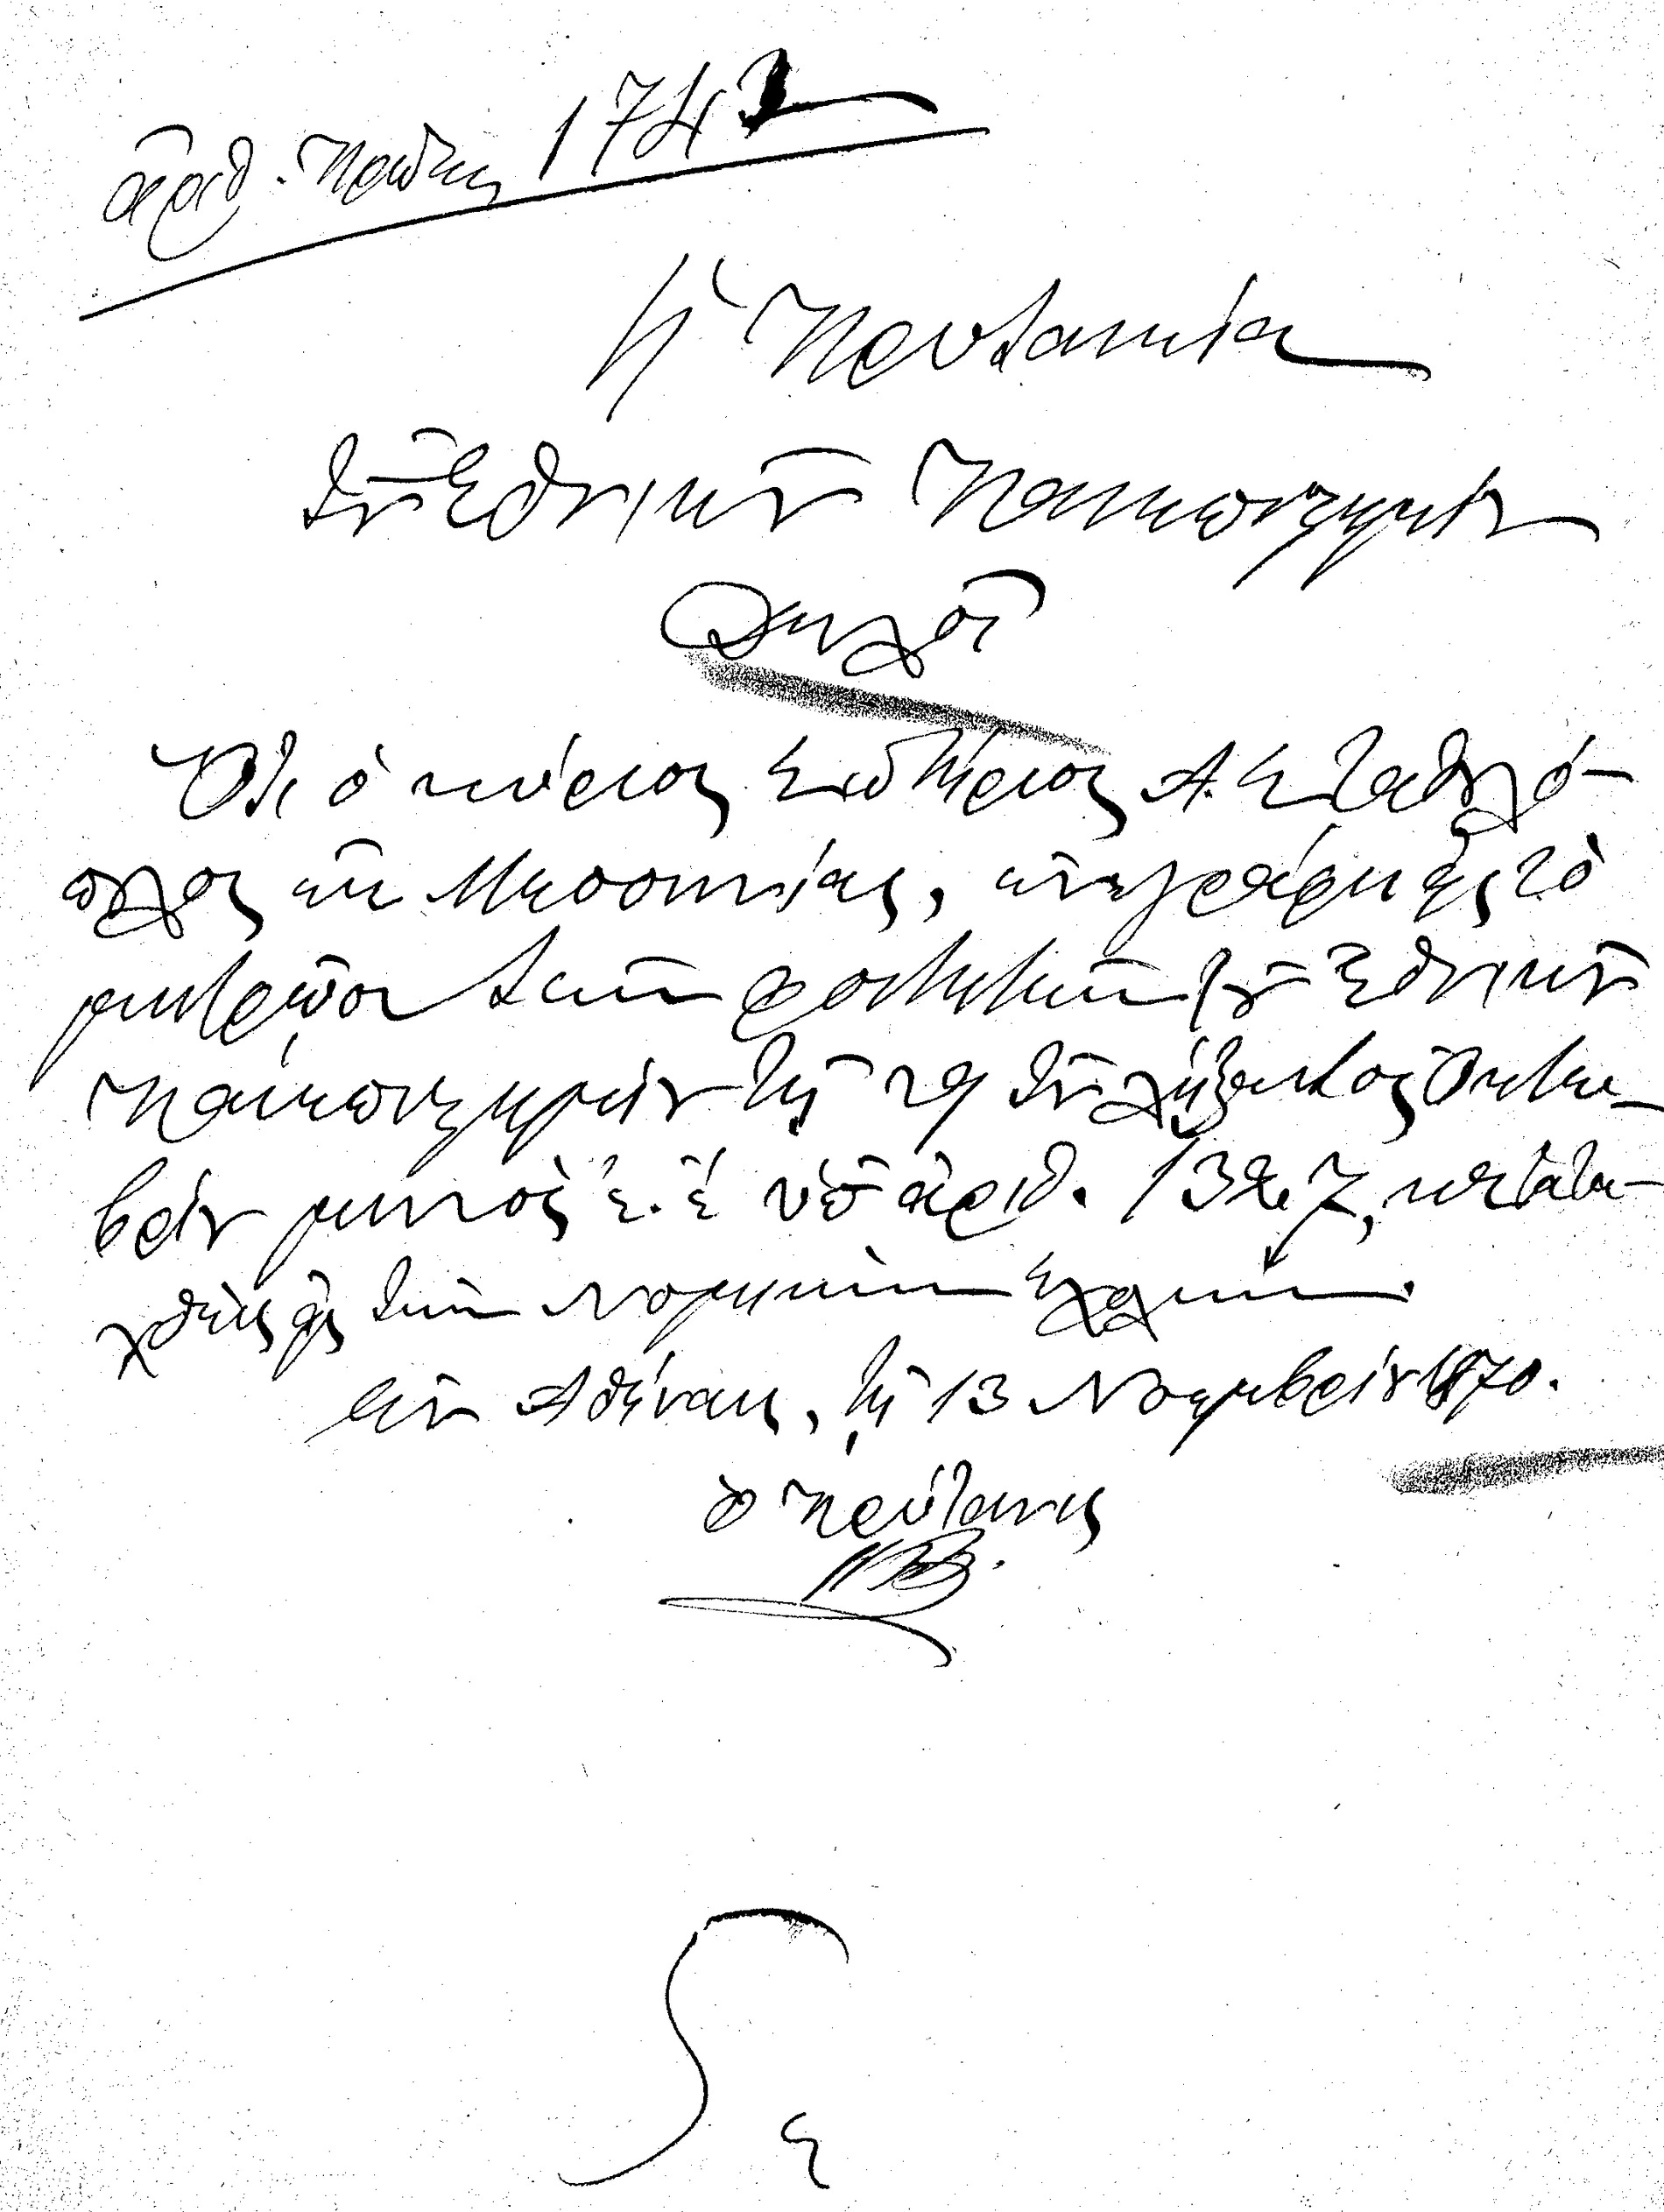 ἀριθ. Πρωτ. 1742
Ἡ Πρυτανεία
τοῦ Ἐθνικοῦ Πανεπιστημίου
Δηλοῖ
Ὅτι ὁ κύριος Σωτήριος Α. Σταθό-
πουλος ἐκ Μεσσηνίας, ἐνεγράφη εἰς τὸ
μητρῷον τῶν φοιτητῶν τοῦ Ἐθνικοῦ
Πανεπιστημίου τῇ 29 τοῦ λήξαντος Ὀκτω-
βρίου μηνὸς ἐ. ἔ ὑπ' ἀριθ. 1327, καταta-
χθεὶς εἰς τὴν Νομικὴν Σχολήν.
Ἐν Ἀθήναις, τῇ 13 Νοεμβρίου 1870.
Ὁ Πρύτανις